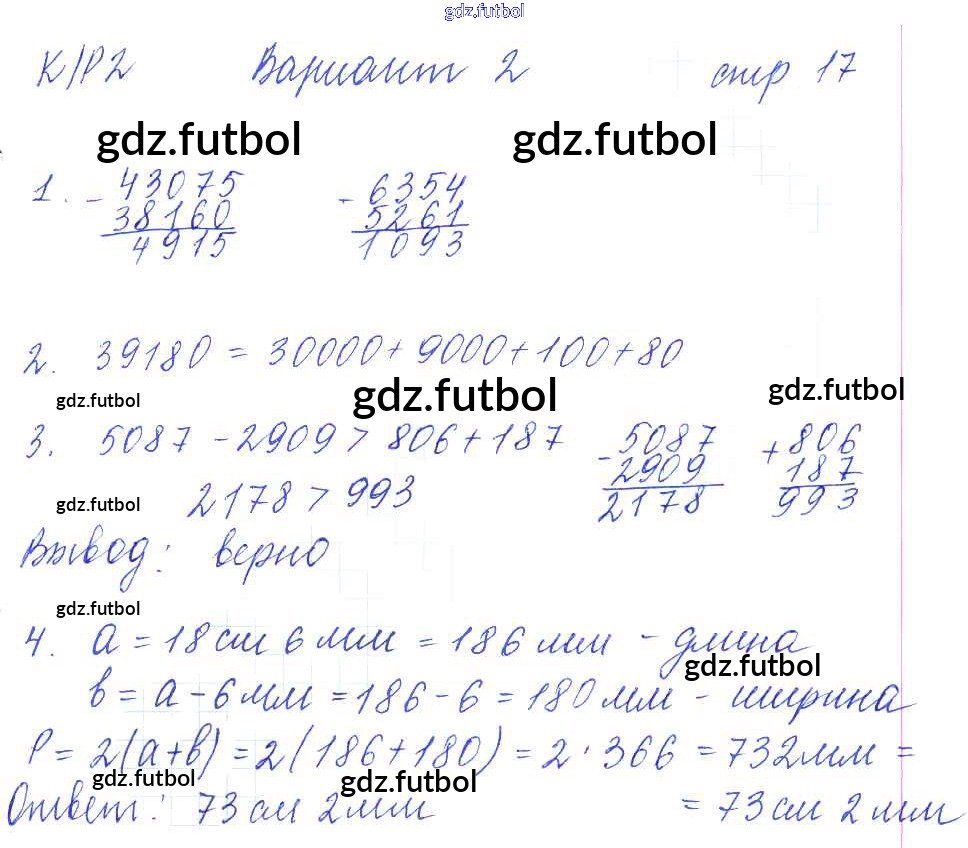 gdz.futbol
К/Р2 Вариант 2 стр 17
gdz.futbol gdz.futbol
1. - 43075 - 6354
38160 5261
4915 1093
2. 39180 = 30000 + 9000 + 100 + 80
gdz.futbol gdz.futbol gdz.futbol
3. 5087 - 2909 > 806 + 187 - 5087 + 806
2909 187
2178 > 993 2178 993
gdz.futbol
Вывод: верно
gdz.futbol
4. a = 18 см 6 мм = 186 мм - длина
gdz.futbol
b = a - 6 мм = 186 - 6 = 180 мм - ширина
P = 2(a+b) = 2(186+180) = 2 · 366 = 732 мм =
gdz.futbol gdz.futbol
Ответ: 73 см 2 мм = 73 см 2 мм